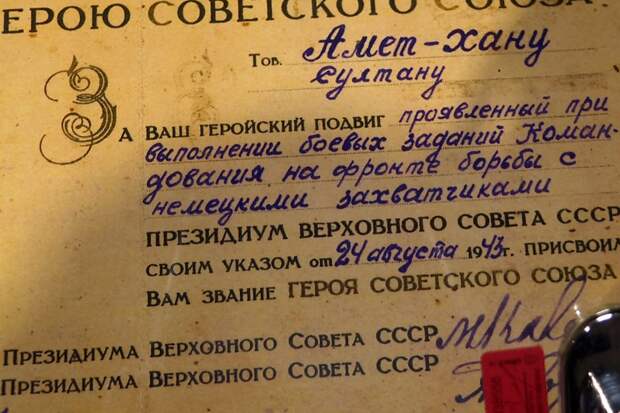 ЕРОЮ СОВЕТСКОГО СОЮЗА
Тов. Амет-Хану
Султану
За Ваш геройский подвиг проявленный при
выполнении боевых заданий Коман-
дования на фронте борьбы с
немецкими захватчиками
ПРЕЗИДИУМ ВЕРХОВНОГО СОВЕТА СССР
своим указом от 24 августа 1943 г. присвоил
Вам звание ГЕРОЯ СОВЕТСКОГО СОЮЗА
Президиума Верховного Совета СССР
Президиума Верховного Совета СССР